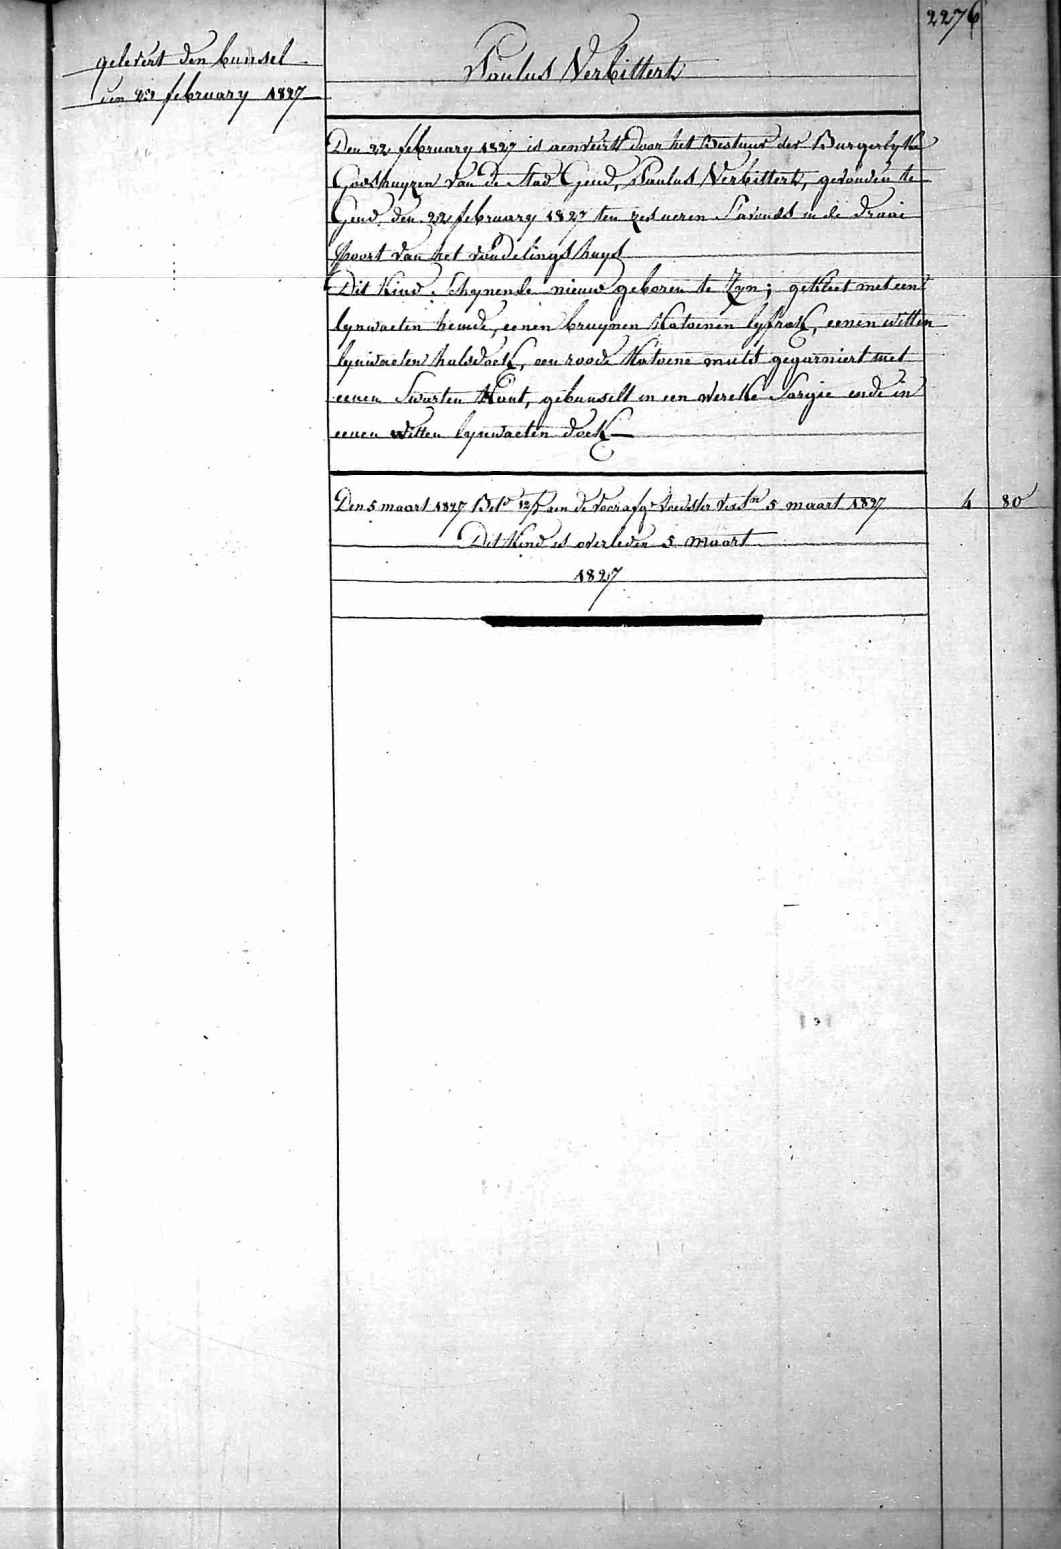 2276
gelevert den bunsel
den 23 february 1827
Paulus Verbittert
Den 22 february 1827 is aenveird door het Bestuur der Burgerlyke
Godshuyzen van de Stad Gend, Paulus Verbittert, gevonden te
Gend den 22 february 1827 ten zes ueren S'avonds in de draai
poort van het vondelingshuys
Dit Kind Schynende nieuw geboren te Zyn; gekleet met een
lynwaeten hemde, eenen bruynen Katoenen lyfrok, eenen witten
lynwaeten halsdoek, een roode Katoene muts gegarniert met
eenen Swarten Kant, gebunselt in een Sargie ende in
eenen witten lynwaeten doek
Den 5 maart 1827 aen de 5 maart 1827 4 80
Dit Kind is overleden 5 maart
1827